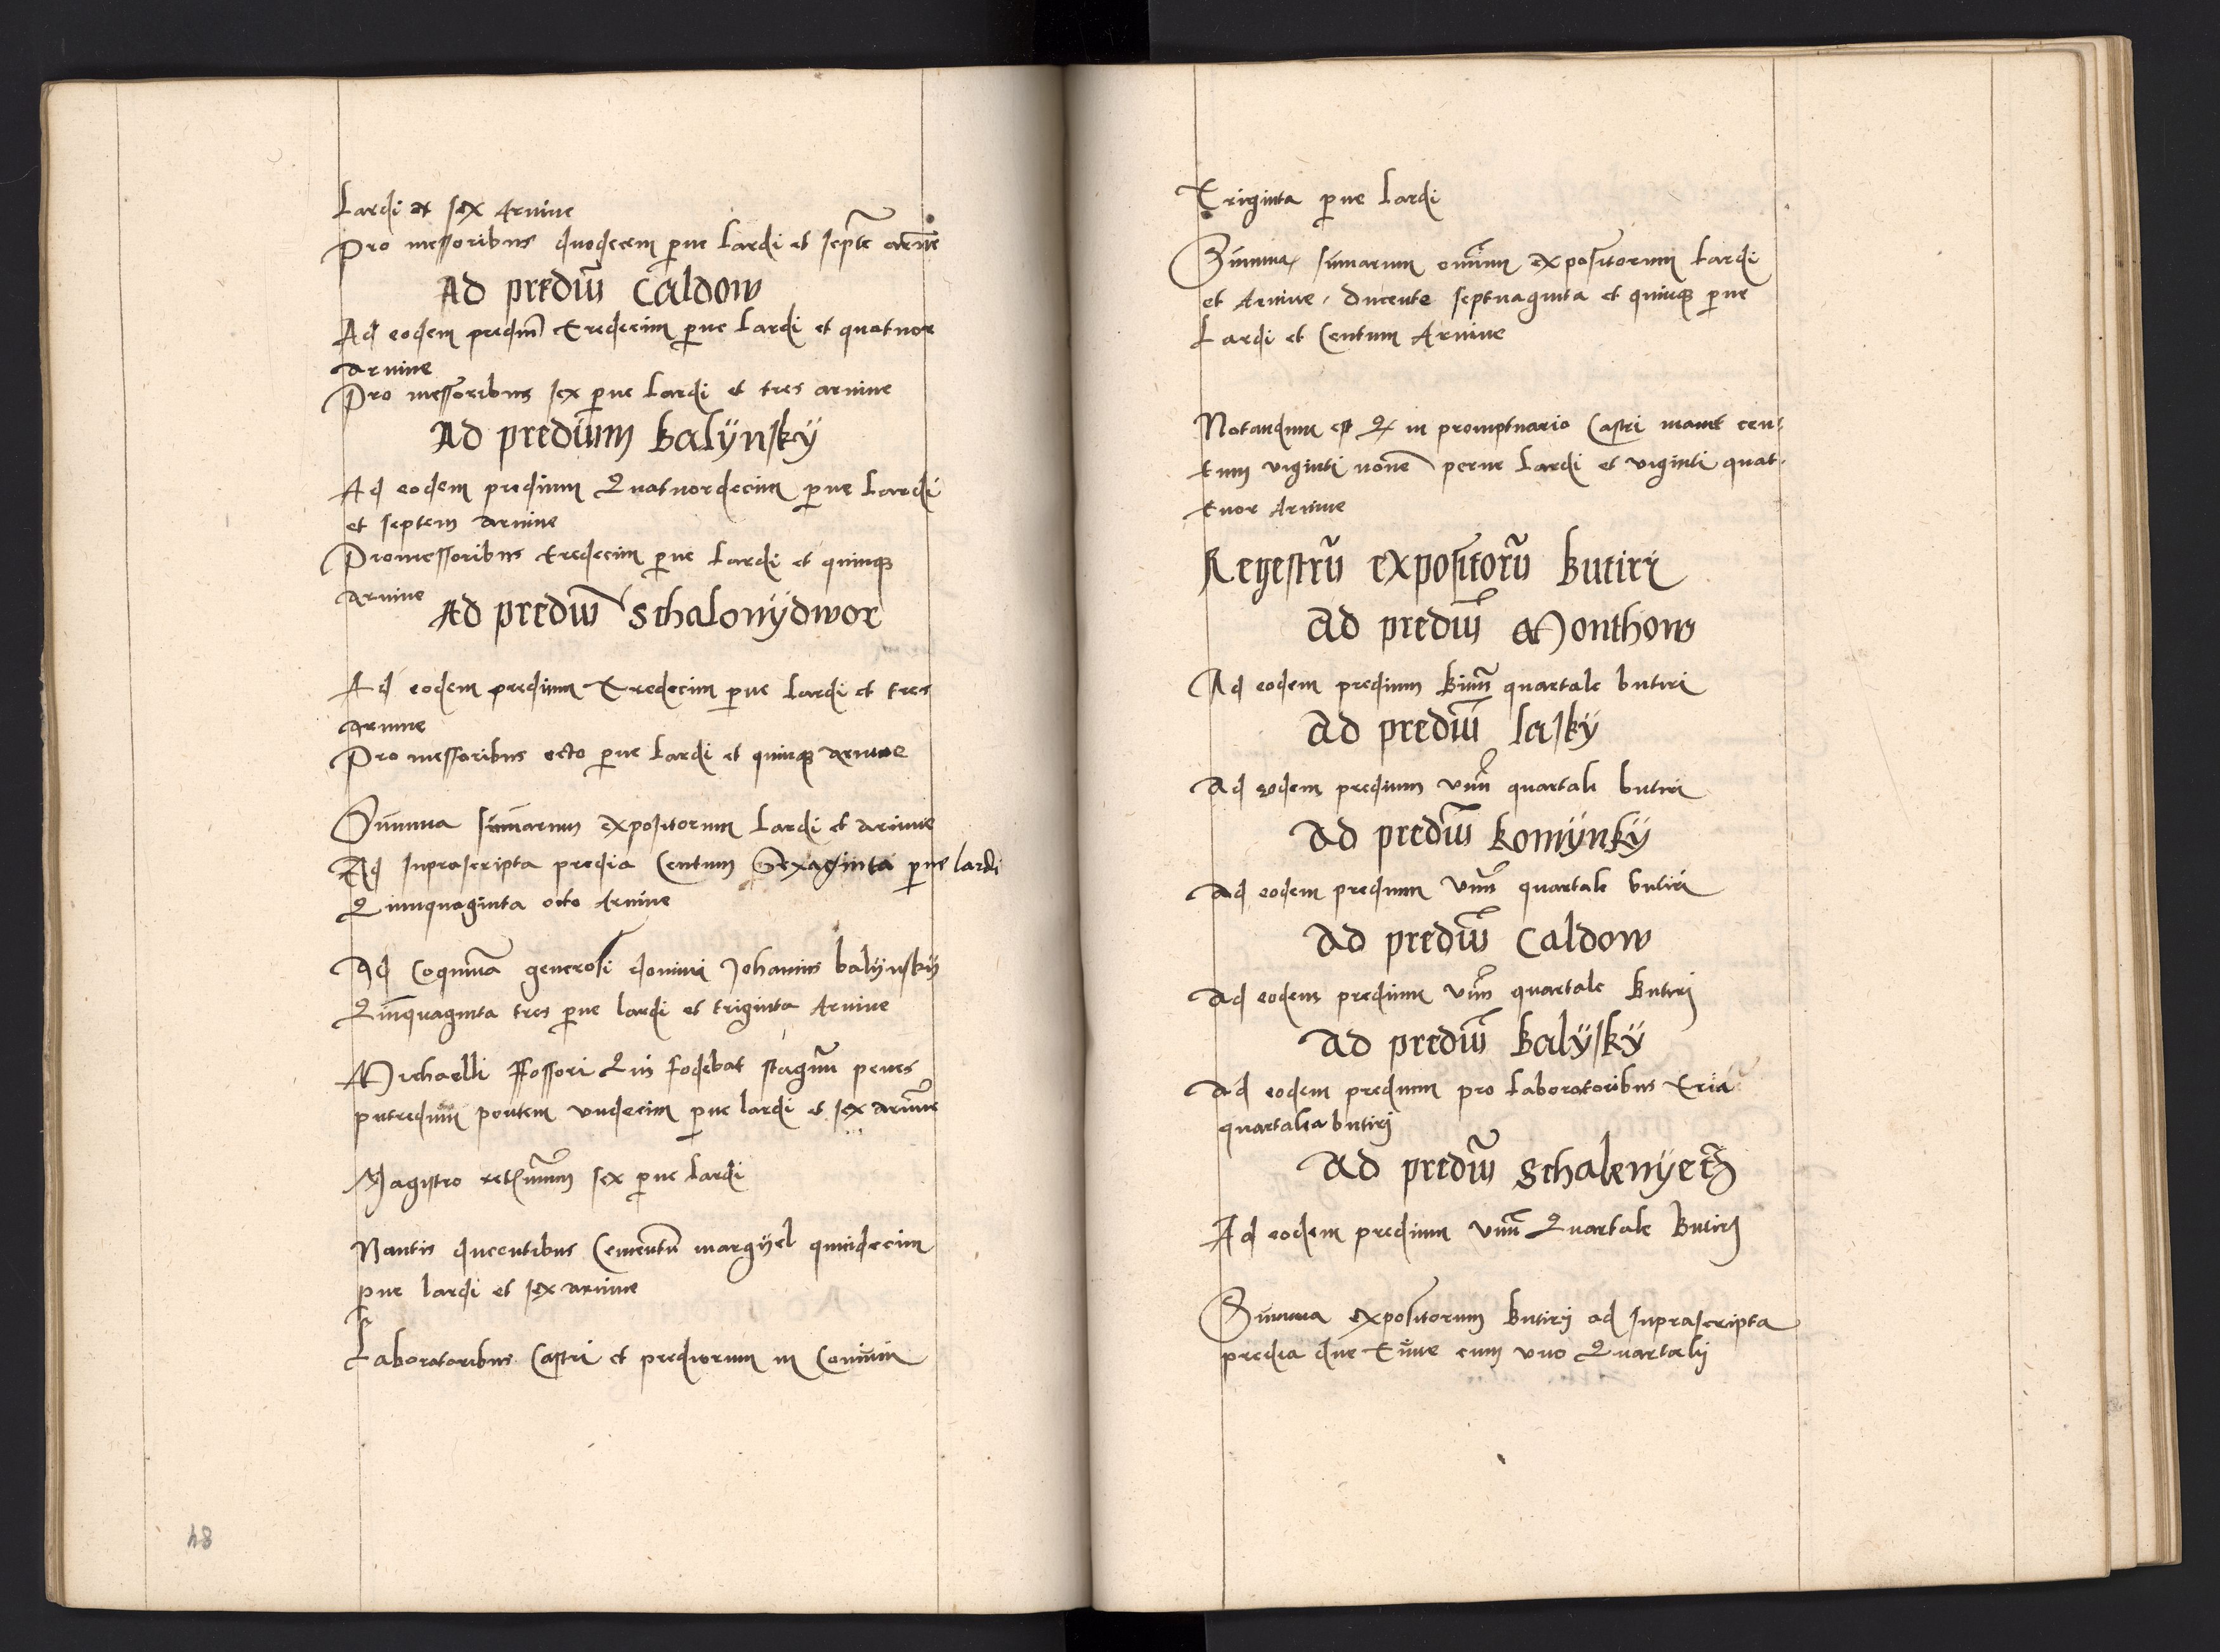 Lardi et sex Arvine
Pro messoribus duodecem p̲ne Lardi et septē arvīe
Ad prediū Caldow
Ad eodem prediū Tredecim p̲ne Lardi et quatuor
arvine
Pro messoribus sex p̲ne Lardi et tres arvine
Ad predium Balÿnskÿ
Ad eodem predium Quatuordecim p̲ne Lardi
et septem arvine
Promessoribus tredecim p̲ne Lardi et quinqꝫ
arvine
Ad prediū Schalonÿdwor
Ad eodem predium Tredecim p̲ne Lardi et tres
arvine
Pro messoribus octo p̲ne Lardi et quinqꝫ arvine
Sūmma sūmarum expositorum Lardi et arvine
Ad suprascripta predia Centum Sexaginta p̲ne lardi
Quinquaginta octo Arvine
Ad Coquinā generosi domini Johannis balÿnskÿ
Quīnquaginta tres p̲ne lardi et triginta Arvine
Michaelli ffossori Qui fodebat stagnū penes
putredum pontem undecim p̲ne lardi et sex arvīne
Magistro sex p̲ne Lardi
Nautis ducentibus Cementū margÿel quindecim
p̲ne lardi et sex arvine
Laboratoribus Castri et prediorum in Comūni
48
Triginta p̲ne Lardi
Sūmma sūmarum omniūm expositorum Lardi
et Arvine, ducente septuaginta et quinqꝫ p̲ne
Lardi et Centum Arvine
Notandum est Q in promptuario Castri manēt cen-
tum viginti novē perne Lardi et viginti quat-
tuor Arvine
Regestrū expositorū Butiri
Ad prediū Monthow
Ad eodem predium Binū quartale butiri
Ad prediū laskÿ
Ad eodem predium unū quartale butiri
Ad prediū komÿnkÿ
Ad eodem predium Unū quartale butiri
Ad prediū Caldow
Ad eodem predium Unū quartale Butirj
Ad prediū Balÿskÿ
Ad eodem predium pro Laboratoribus tria
quartalea butirj
Ad prediū
Ad eodem predium Unū Quartale Butirj
Sūmma expositorum Butirj ad suprascripta
predia due Tūne cum uno Quartalj